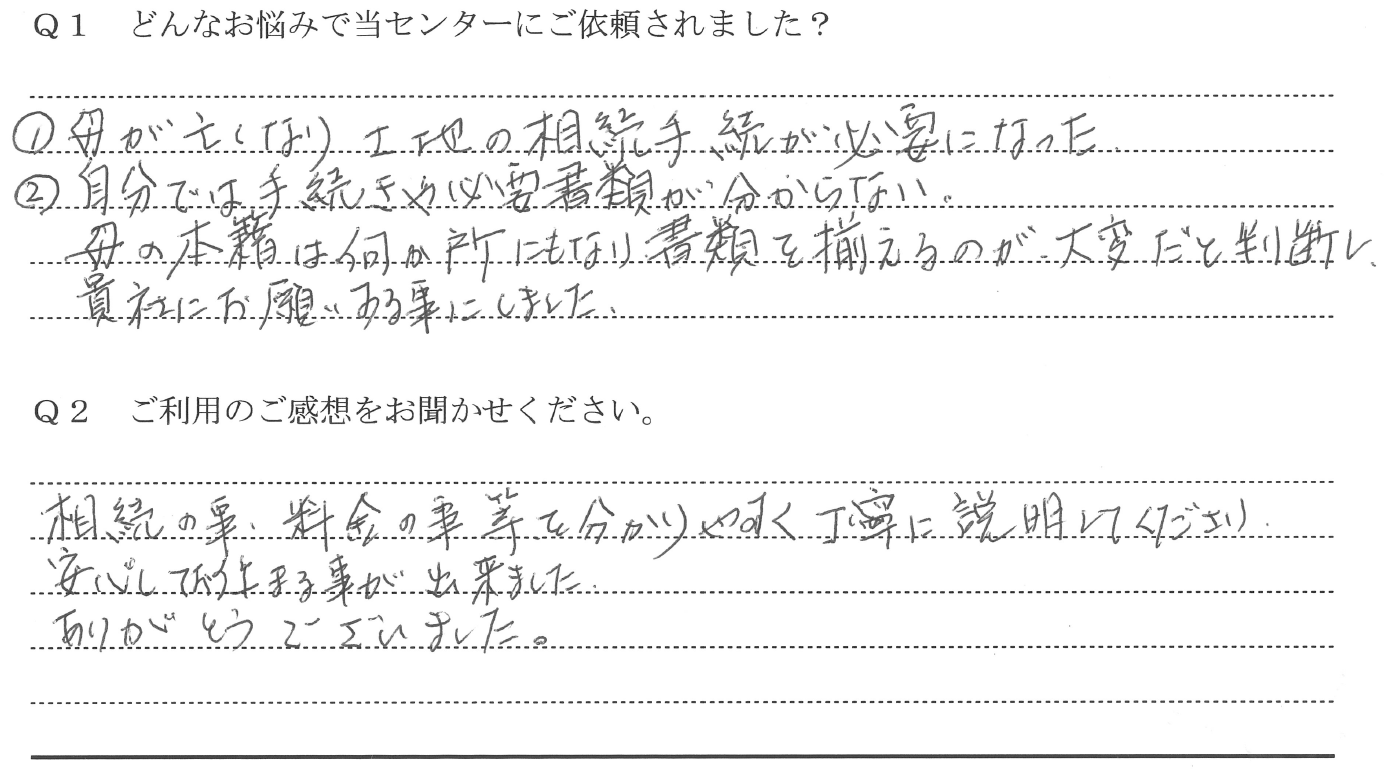 Ｑ１　どんなお悩みで当センターにご依頼されました？
①母が亡くなり土地の相続手続が必要になった.
②自分では手続きや必要書類が分からない。
母の本籍は何か所にもなり書類を揃えるのが大変だと判断し、
貴社にお願いする事にしました.
Ｑ２　ご利用のご感想をお聞かせください。
相続の事、料金の事等を分かりやすく丁寧に説明してくださり.
安心してお任せる事が出来ました.
ありがとうございました。